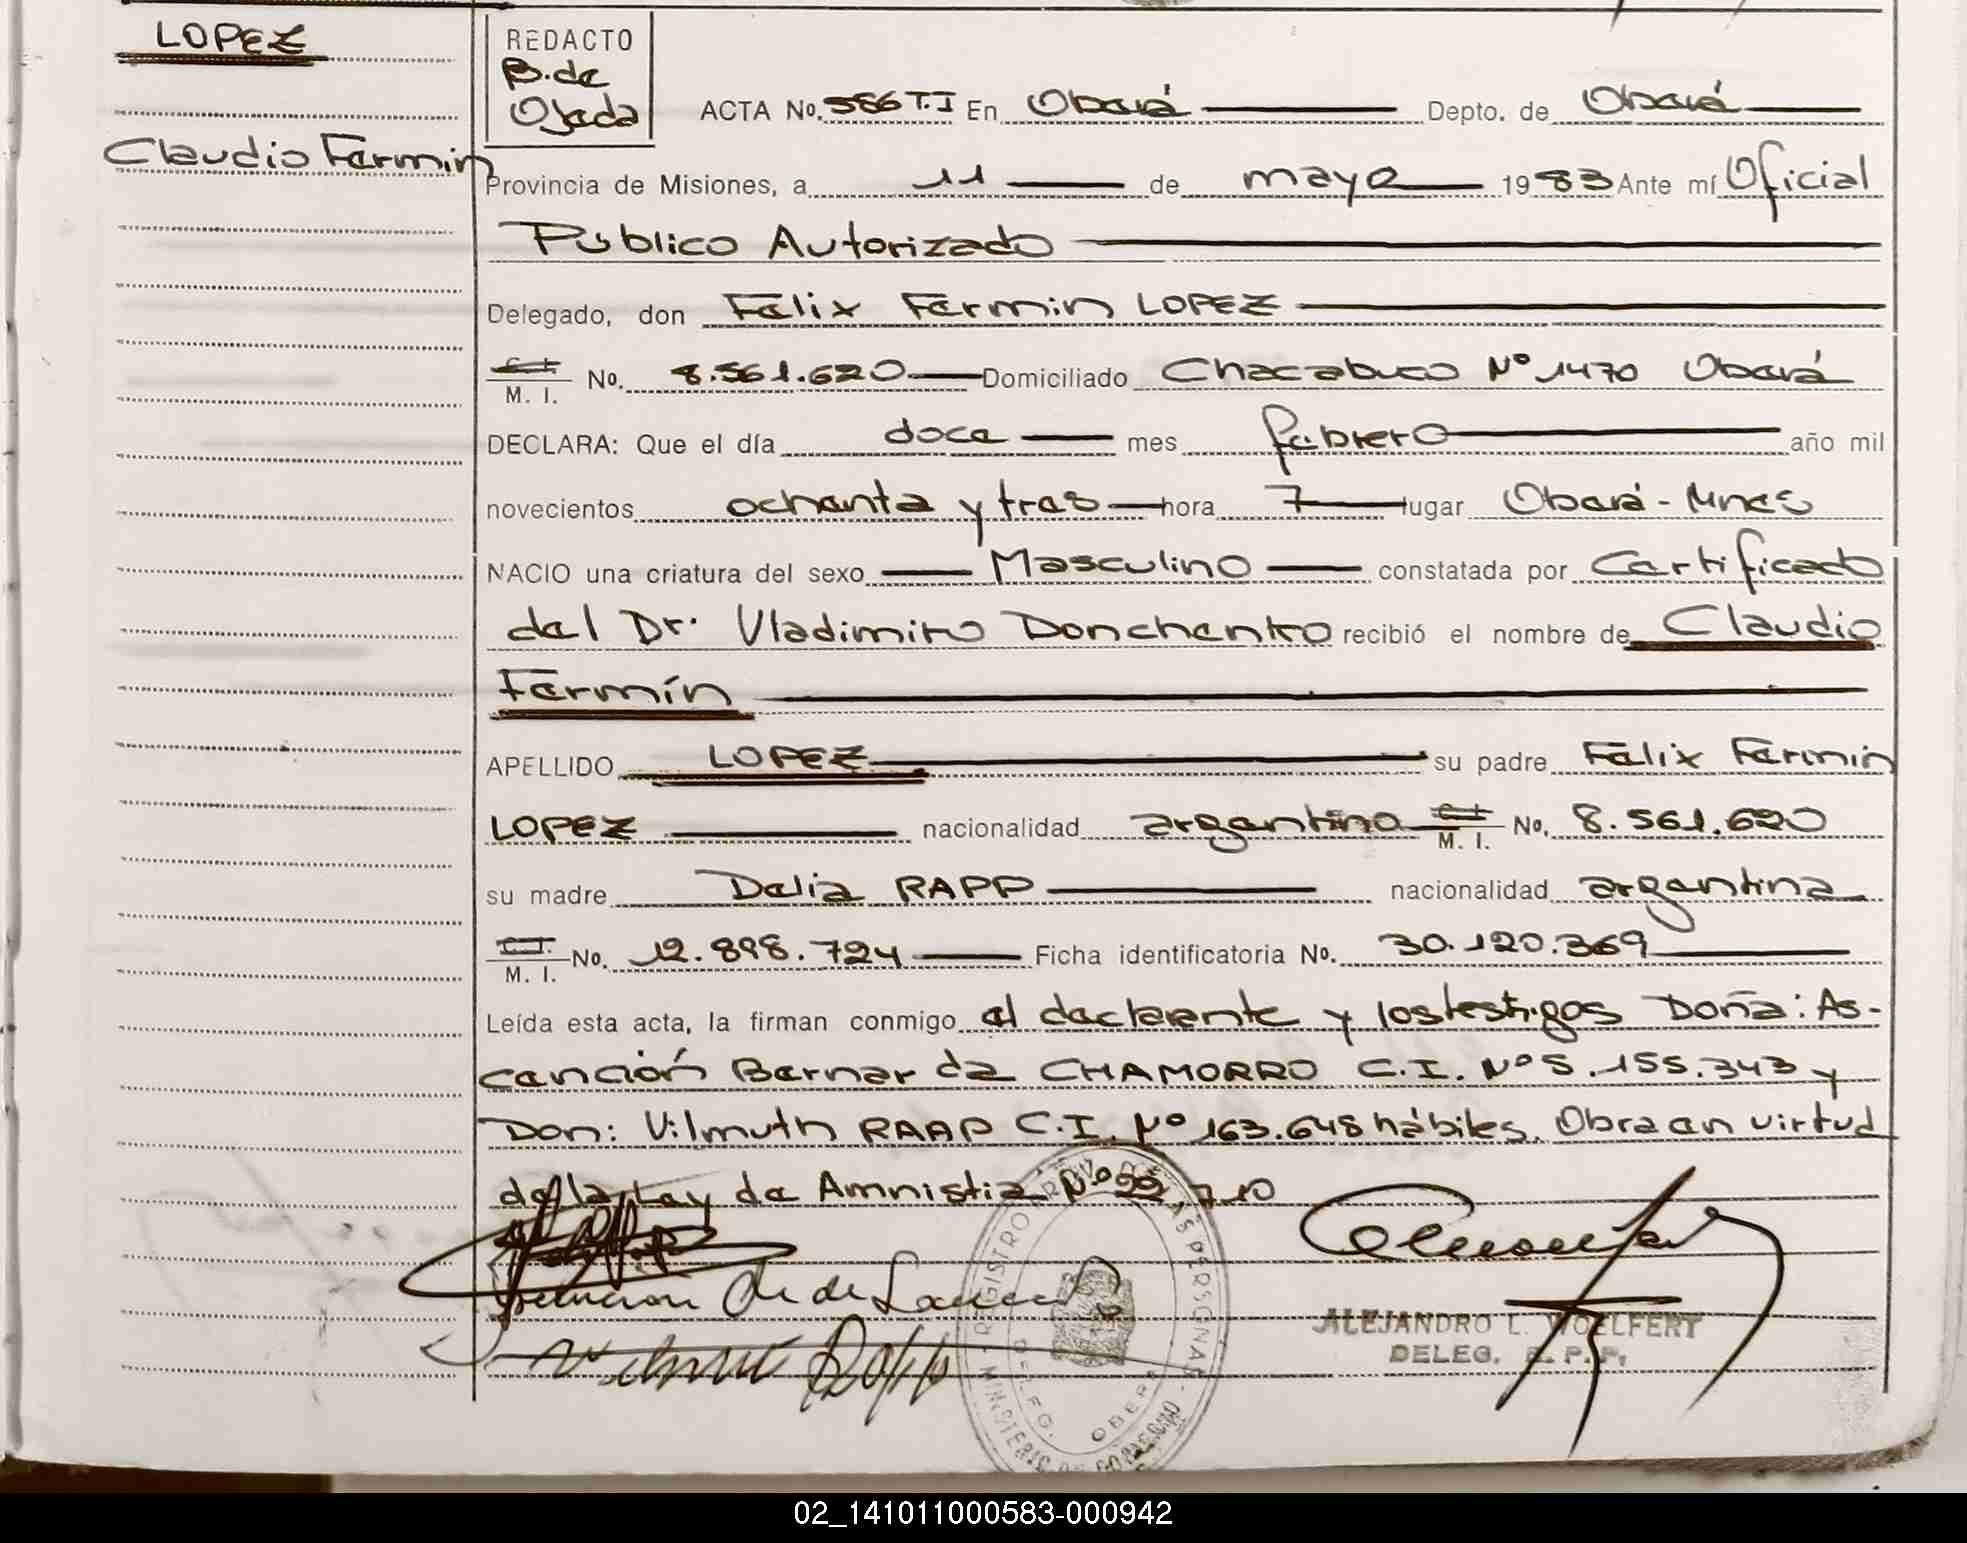 LOPEZ
Claudio Fermin
REDACTO
B. de
Ojeda
ACTA No. 586 T.I En Oberá Depto. de Oberá
Provincia de Misiones, a 11 de mayo 1983 Ante mí Oficial
Público Autorizado
Delegado, don Felix Fermin LOPEZ
C.I. M. I. No. 8.561.620 Domiciliado Chacabuco Nº 1470 Oberá
DECLARA: Que el día doce mes febrero año mil
novecientos ochenta y tres hora 7 lugar Oberá - Mnes
NACIO una criatura del sexo Masculino constatada por Certificado
del Dr. Vladimiro Donchenko recibió el nombre de Claudio
Fermín
APELLIDO LOPEZ su padre Felix Fermin
LOPEZ nacionalidad argentina C.I. M. I. No. 8.561.620
su madre Delia RAPP nacionalidad argentina
C.I. M. I. No. 12.898.724 Ficha identificatoria No. 30.120.369
Leída esta acta, la firman conmigo el declarante y los testigos Doña: As-
cención Bernarda CHAMORRO C.I. Nº 5.155.343 y
Don: Vilmuth RAAP C.I. Nº 163.648 hábiles. Obra en virtud
de la Ley de Amnistia Nº 22.710
ALEJANDRO L. WOELFERT
DELEG. R. P. P.
REGISTRO PERSONAS
DELEG. OBERA
MINISTERIO DE GOBIERNO
02_141011000583-000942